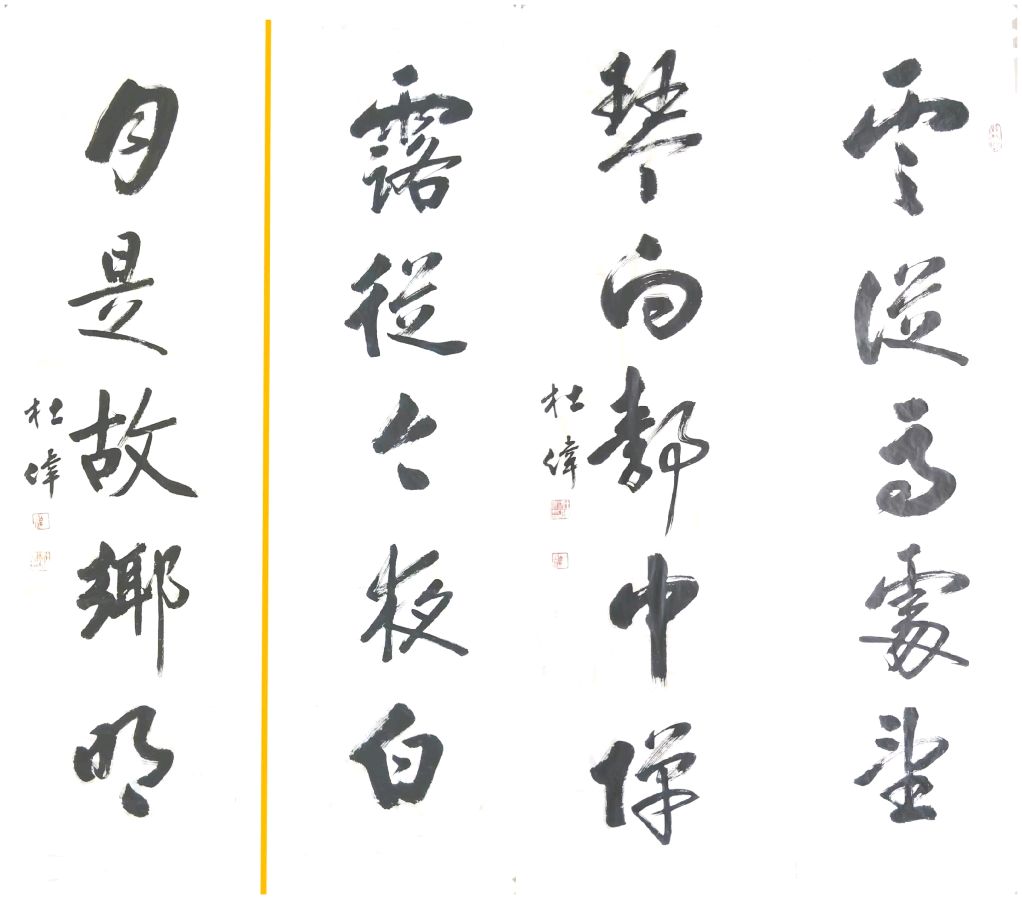 雲從高處望
琴向靜中彈
杜偉
露從今夜白
月是故鄉明
杜偉